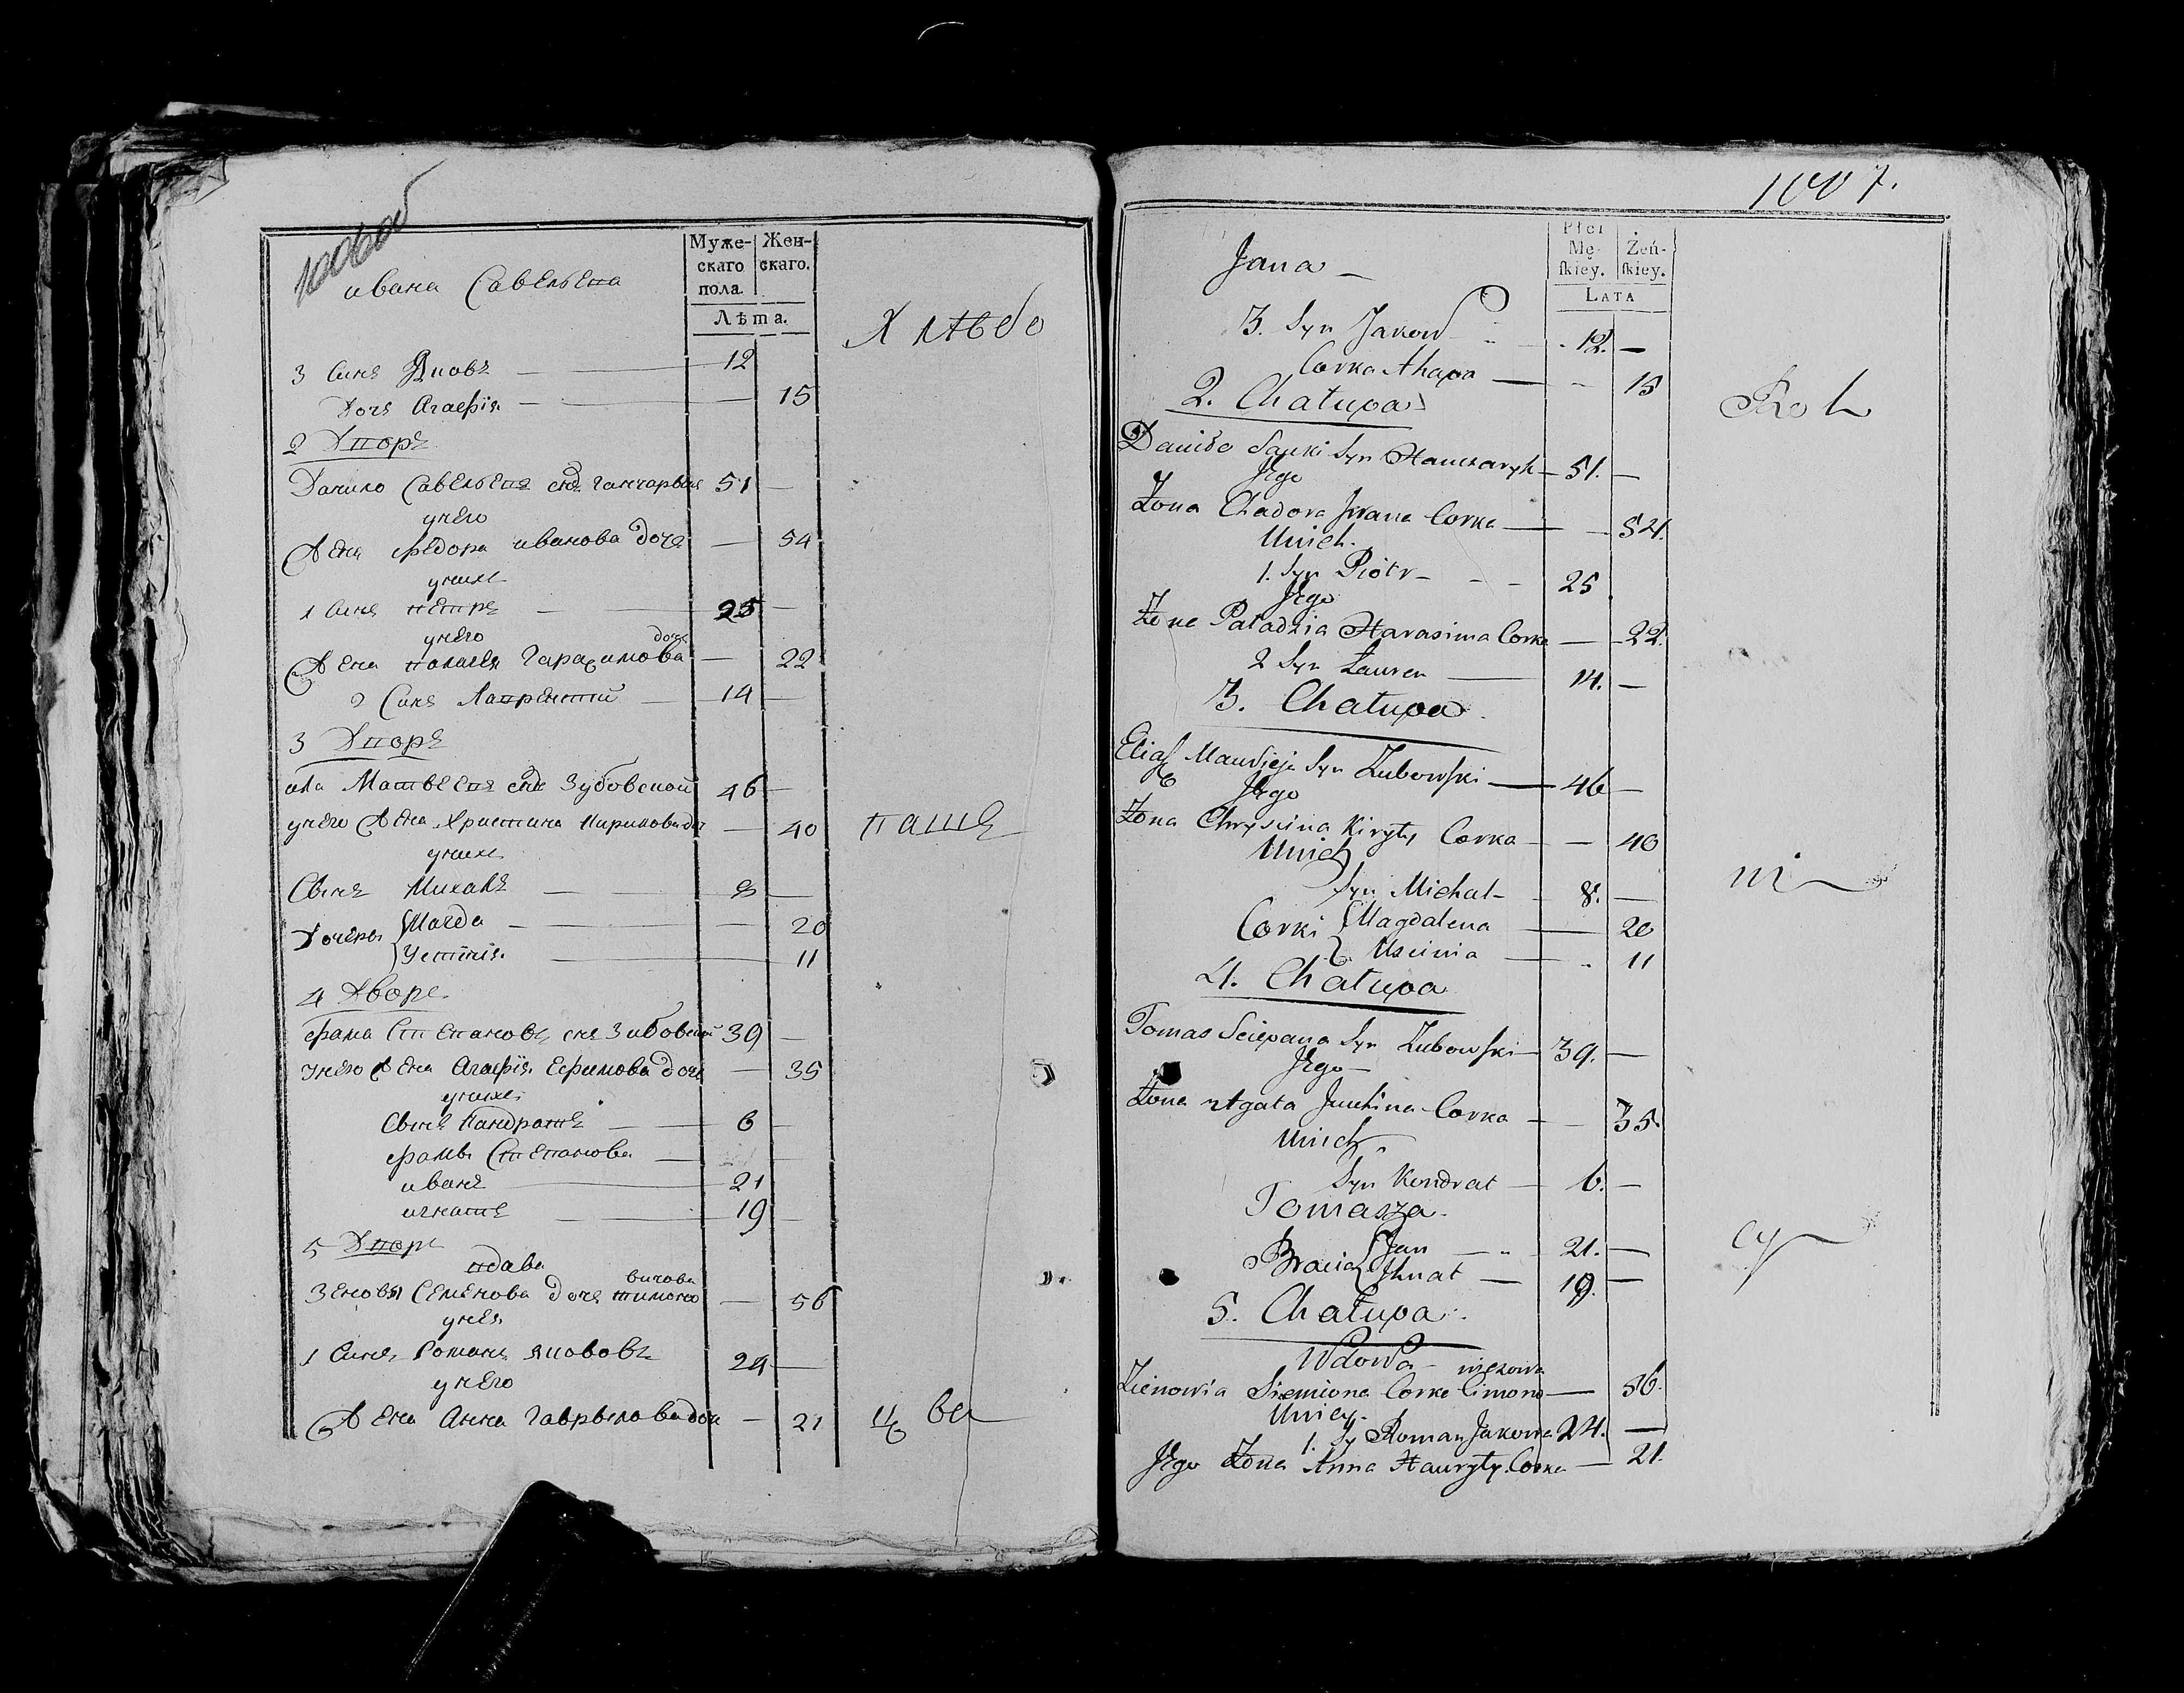 ивана Савельева
Муже-скаго пола.
Жен-скаго.
Лѣта.
Хлѣбо
3 Синъ Яковъ — 12
Дочь Агаѳія — 15
2 Дворъ
Данило Савельевъ снъ ганчарыкъ 51 —
у него
Жена ѳедора иванова дочь — 54
у нихъ
1 Синъ петръ — 25 —
у него
Жена палагея Гарасимова дочь — 22
2 Синъ Лаврентий — 14 —
3 Дворъ
илья Матвеевъ снъ Зубовской 46 —
у него Жена Христина Кирилова доч — 40
паше
у нихъ
Сынъ Михалъ — 8 —
Дочеры Магда — 20
Устинія — 11
4 Дворъ
ѳама Степановъ снъ Зибовский 39 —
у него Жена Агаѳія Ефимова дочь — 35
у нихъ
Сынъ Кандратъ — 6 —
ѳамы Степанова —
иванъ — 21
игнатъ — 19 —
5 Дворъ
вдава
Зеновья Семенова дочь тимоховичова — 56
у нея
1 Синъ Романъ яковавъ 24 —
у него
Жена Анна Гаврылова доч — 21
ц ва
1007.
Jana —
Płci Mę-skiey.
Żeń-skiey.
LATA
3. Syn Jakow — 12. —
Corka Ahapa — 15
Rol
2. Chałupa
Daniło Sauki Syn Hanczaryk — 51. —
Jego
Żona Chadora Jwana Corka — 54.
Unich.
1. Syn Piotr — 25
Jego
Żona Paładzia Harasima Corka — 22.
2 Syn Łauren — 14. —
3. Chałupa
Eliasz Maudieja Syn Zubowski — 46 —
Jego
Żona Chryscina Kiryły Corka — 40
Unich
Syn Michał — 8. —
ni
Corki Magdalena — 20
Uscinia — 11
4. Chałupa
Tomas Sciepana Syn Zubowski — 39. —
Jego —
Żona Agata Juchina Corka — 35.
Unich
Syn Kondrat — 6. —
Tomasza.
Bracia Jan — 21. —
Jhnat — 19. —
cy
5. Chałupa.
Wdowa
Zienowia Siemiona Corka — 56.
Uniey.
1. Sy Roman Jakowa 24. —
Jego Żona Anna Hauryły Corka — 21.